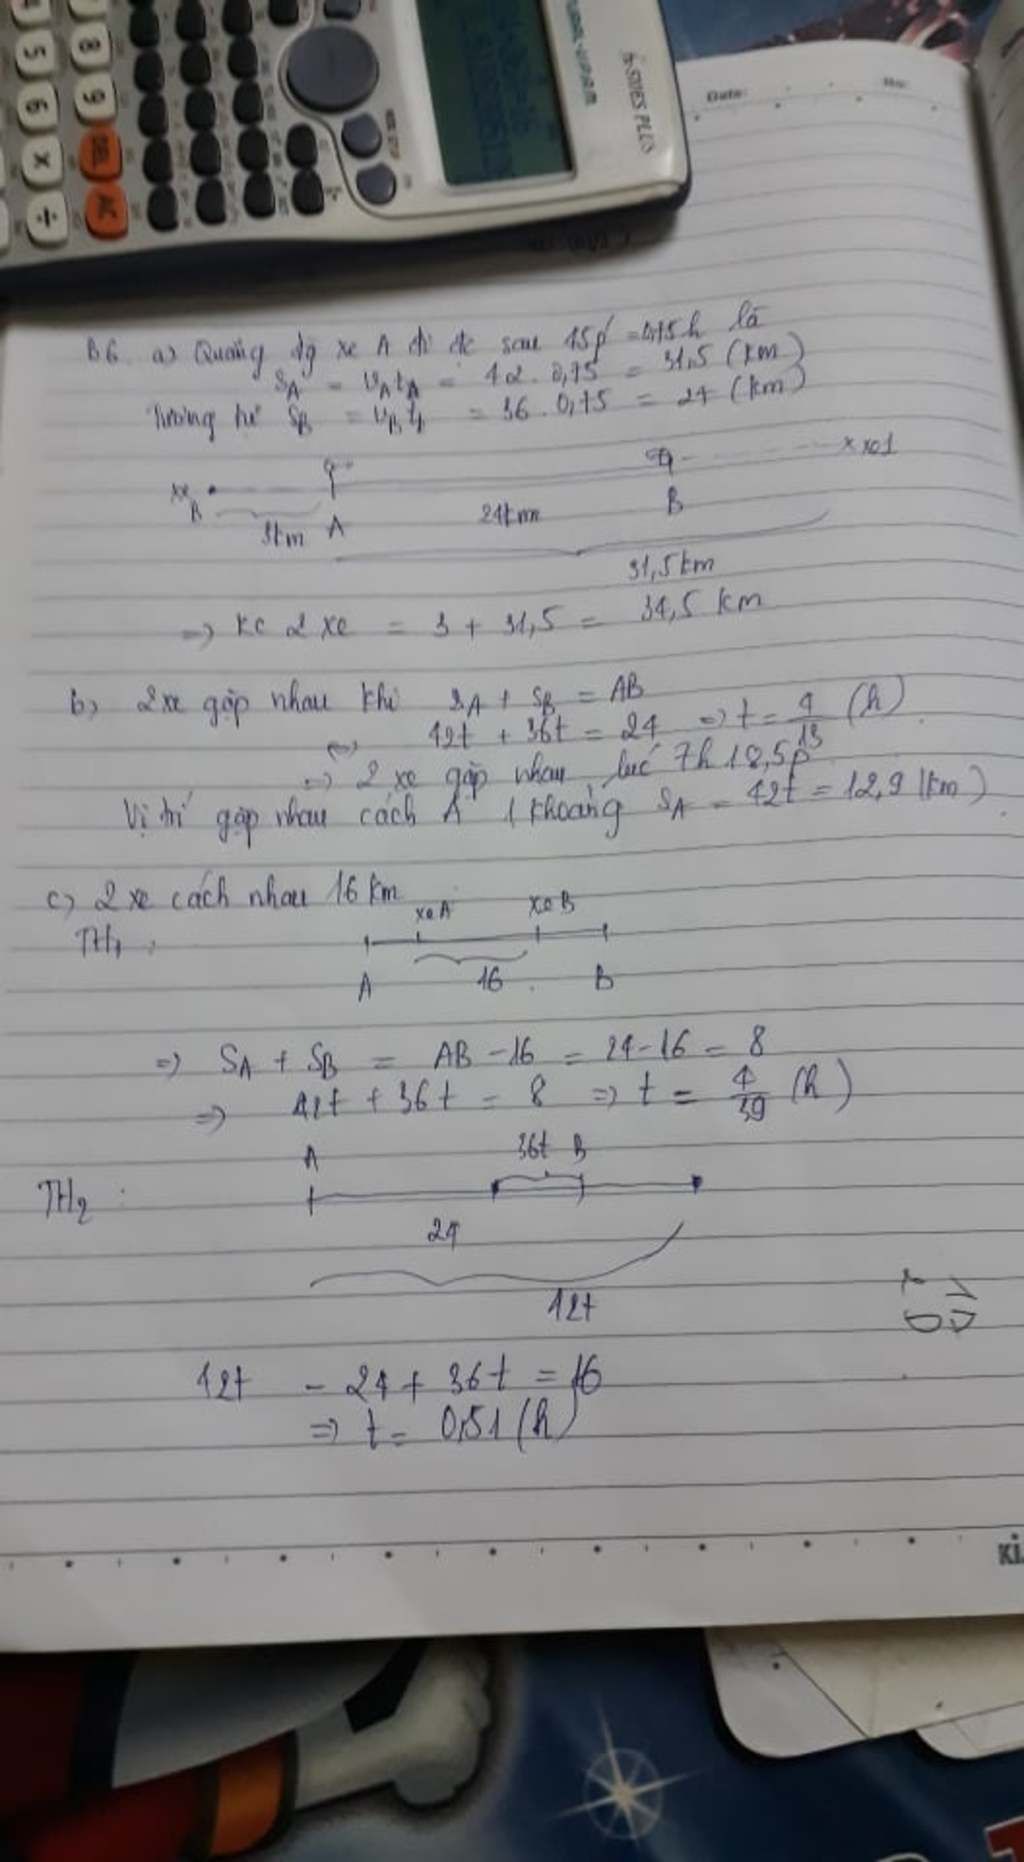 5 8
6 9 DEL
x AC
÷
570ES PLUS
Date: No:
B6. a) Quãng đg xe A đi đc sau 45p' = 0,75h là
SA = vA tA = 42 . 0,75 = 31,5 (km)
Tương tự SB = vB t = 36 . 0,75 = 27 (km)
xe B A 24km B xe 1
3km
31,5km
=> kc 2 xe = 3 + 31,5 = 34,5 km
b) 2 xe gặp nhau khi SA + SB = AB
<=> 42t + 36t = 24 => t = 4/13 (h)
=> 2 xe gặp nhau lúc 7h 18,5p
Vị trí gặp nhau cách A 1 khoảng SA = 42t = 12,9 (km)
c) 2 xe cách nhau 16 km
TH1 : xe A xe B
A 16 B
=> SA + SB = AB - 16 = 24 - 16 = 8
=> 42t + 36t = 8 => t = 4/39 (h)
TH2 : A 36t B
24
42t
42t - 24 + 36t = 16
=> t = 0,51 (h)